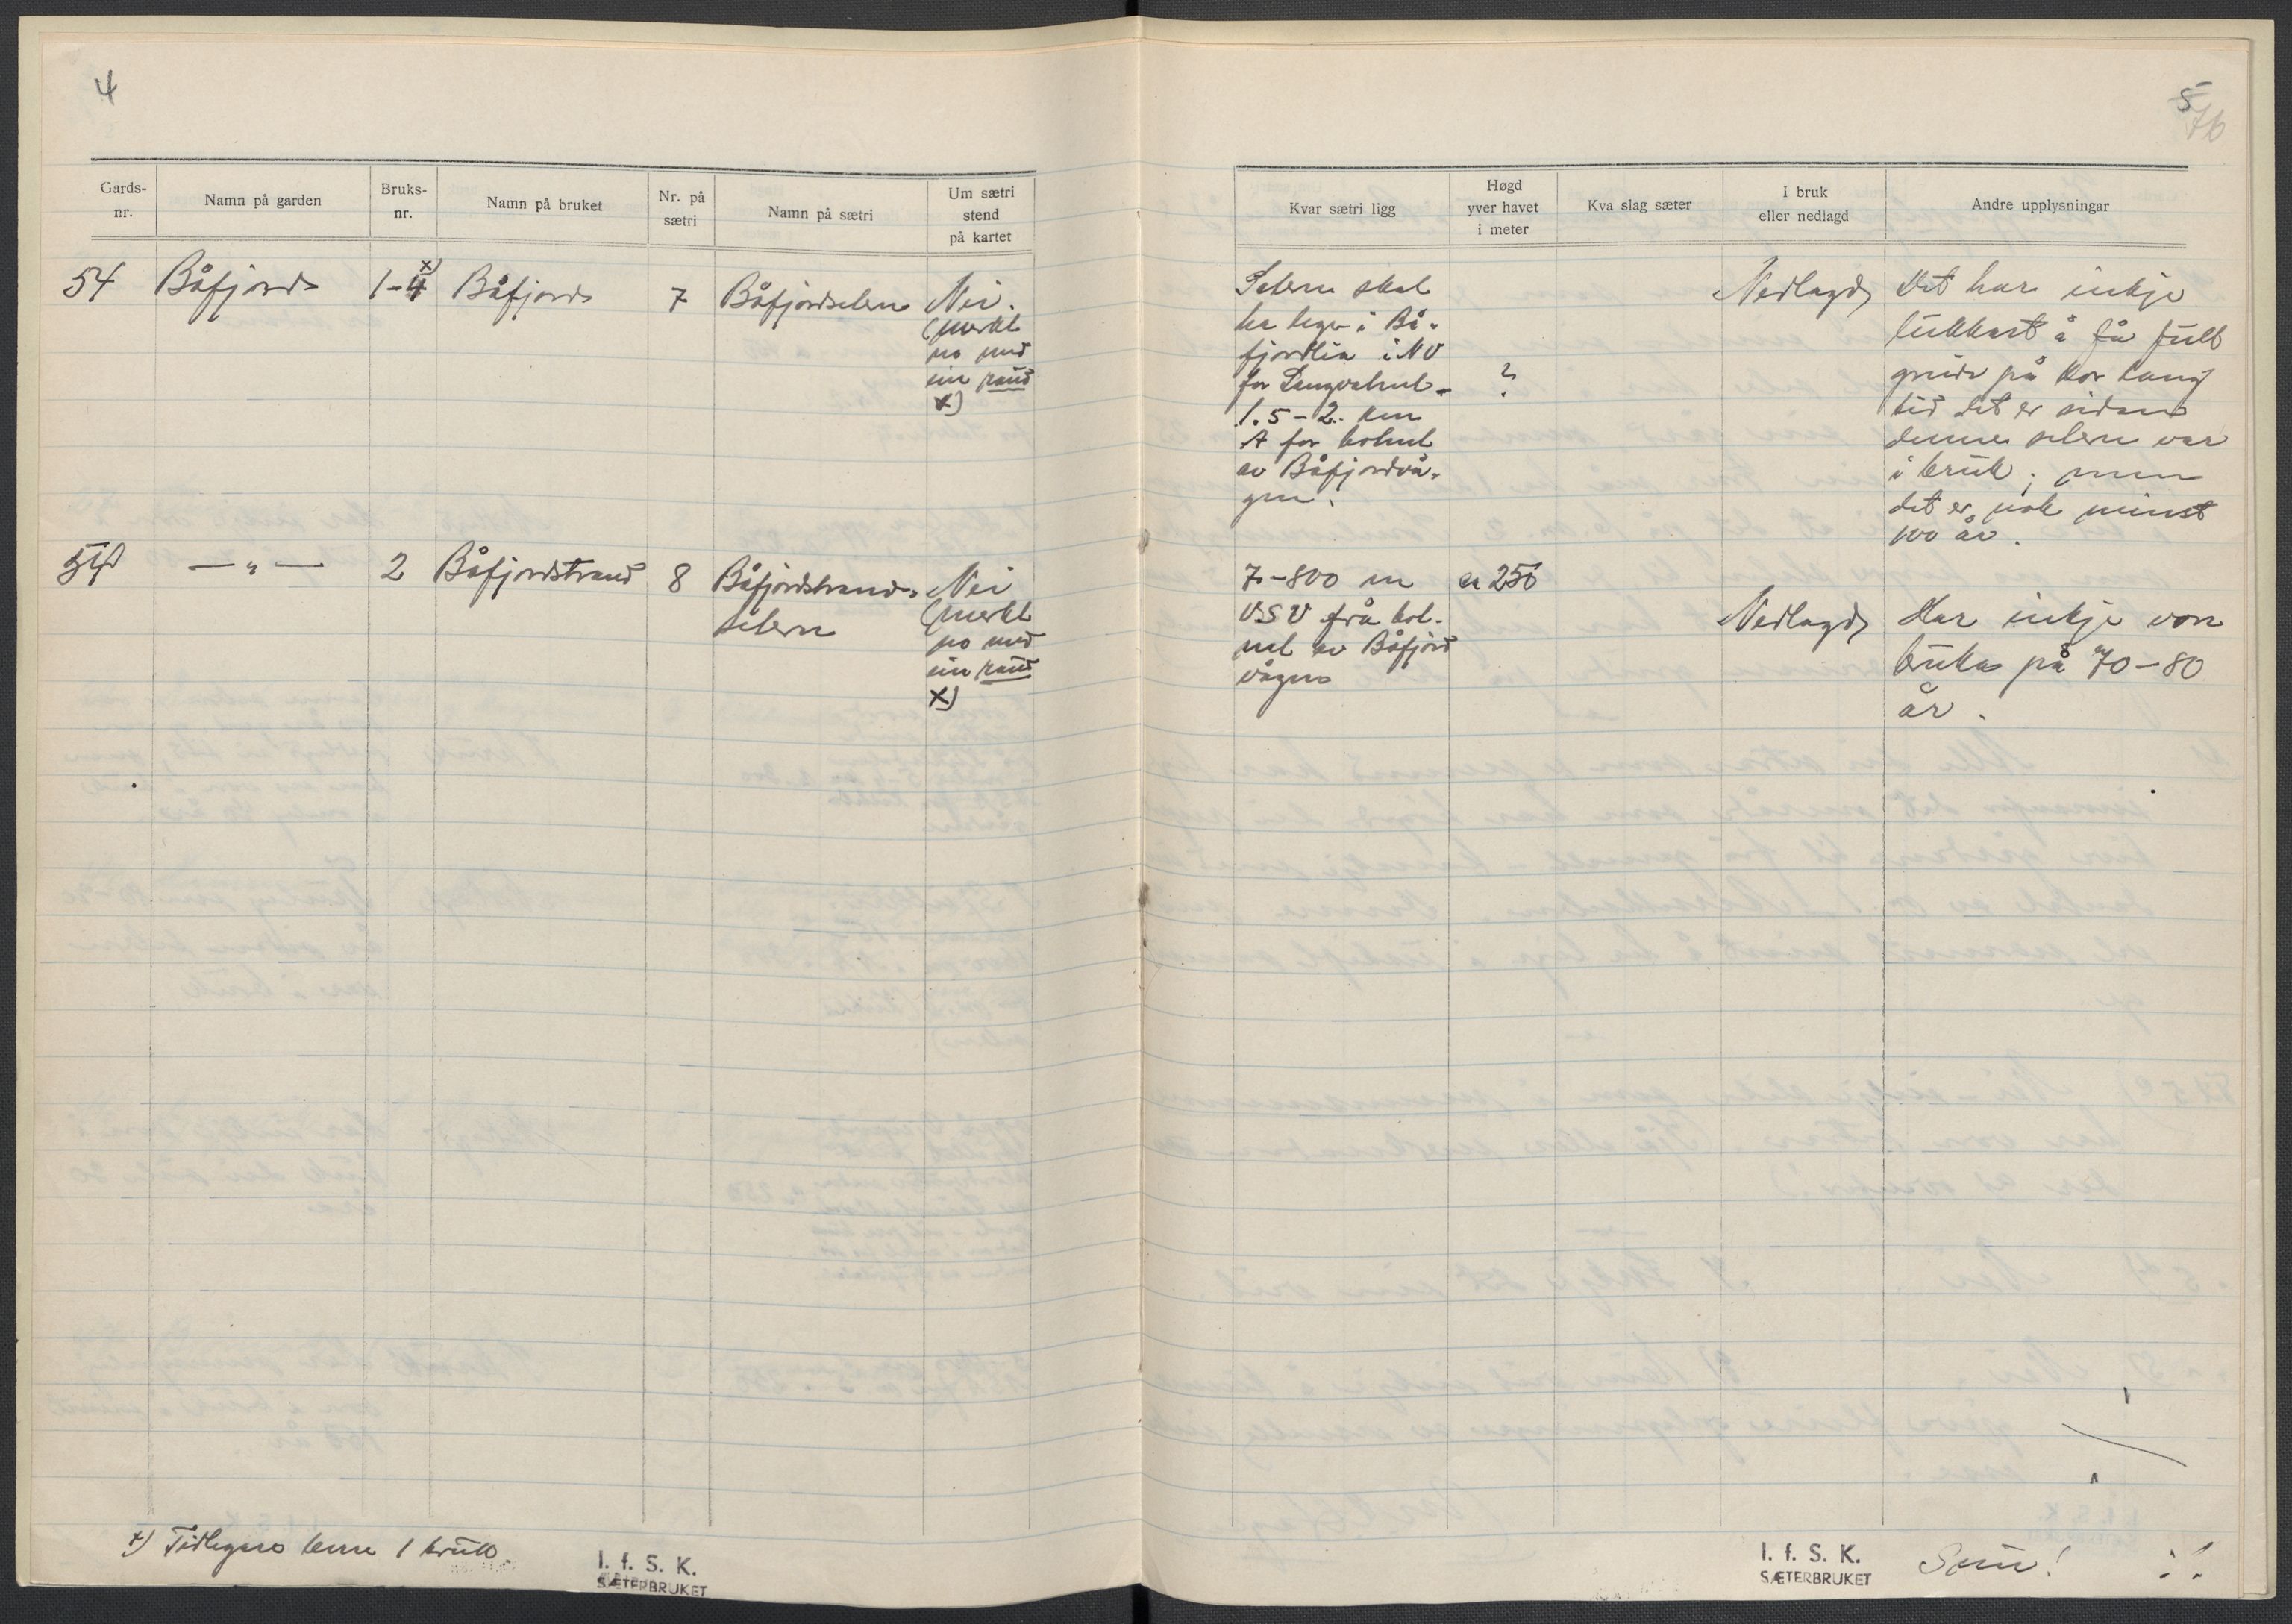 4
Gards-nr.
Namn på garden
Bruks-nr.
Namn på bruket
Nr. på sætri
Namn på sætri
Um sætri stend på kartet
54 Båfjord 1-4 x) Båfjord 7 Båfjordsetern Nei.
(merkt
no med
ein raud
x)
54 — " — 2 Båfjordstrand 8 Båfjordstrand-
setern
Nei
(merkt
no med
ein raud
x)
x) Tidlegare berre 1 bruk
I. f. S. K.
SÆTERBRUKET
5
76
Kvar sætri ligg
Høgd yver havet i meter
Kva slag sæter
I bruk eller nedlagd
Andre upplysningar
Setern skal
ha lege i Bå-
fjordlia i NV
for Langvatnet -
1.5-2. km
A for botnet
av Båfjordvå-
gen.
?
Nedlagd
Det har inkje
lukkast å få full
greide på kor lang
tid det er sidan
denne setern var
i bruk; men
det er nok minst
100 år.
7-800 m
VSV frå bot-
net av Båfjord
vågen
ca 250
Nedlagd
Har inkje vore
bruka på 70-80
år.
I. f. S. K.
SÆTERBRUKET
Snu!